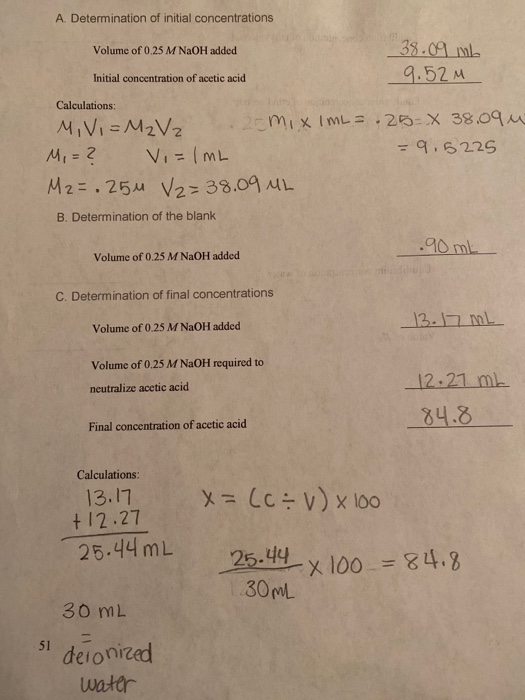 A. Determination of initial concentrations
Volume of 0.25 M NaOH added 38.09 mL
Initial concentration of acetic acid 9.52 M
Calculations:
M₁V₁ = M₂V₂ M₁ x 1mL = .25 x 38.09 M
M₁ = ? V₁ = 1mL = 9.5225
M₂ = .25M V₂ = 38.09 mL
B. Determination of the blank
Volume of 0.25 M NaOH added .90 mL
C. Determination of final concentrations
Volume of 0.25 M NaOH added 13.17 mL
Volume of 0.25 M NaOH required to
neutralize acetic acid 12.27 mL
Final concentration of acetic acid 84.8
Calculations:
13.17 X = (C ÷ V) x 100
+ 12.27
25.44 mL 25.44 x 100 = 84.8
30mL
30 mL
=
51 deionized
water